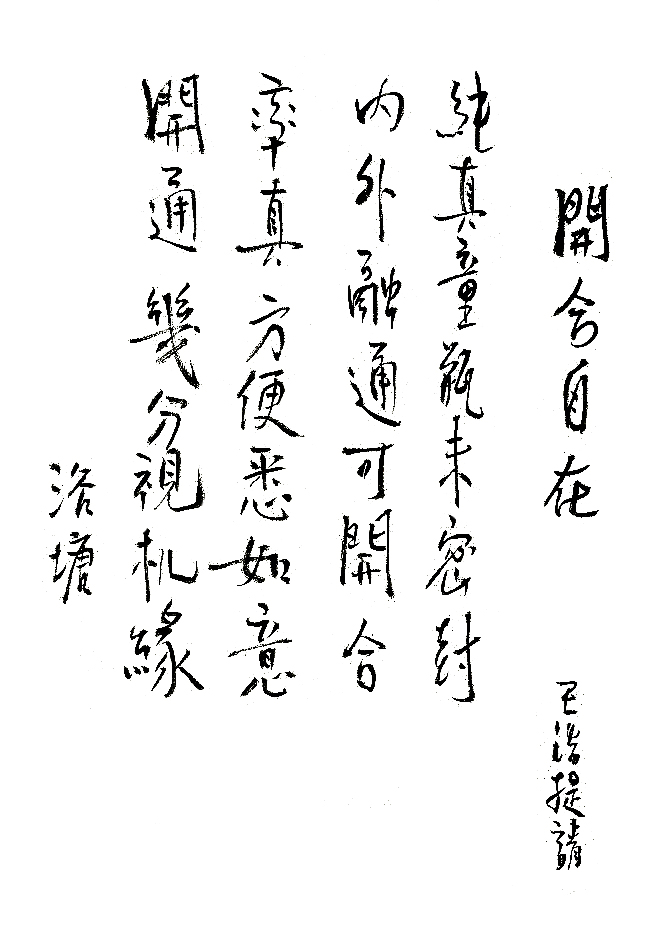 開合自在
王浩提請
純真童瓶未密封
內外融通可開合
率真方便悉如意
開通幾分視机緣
浴塘